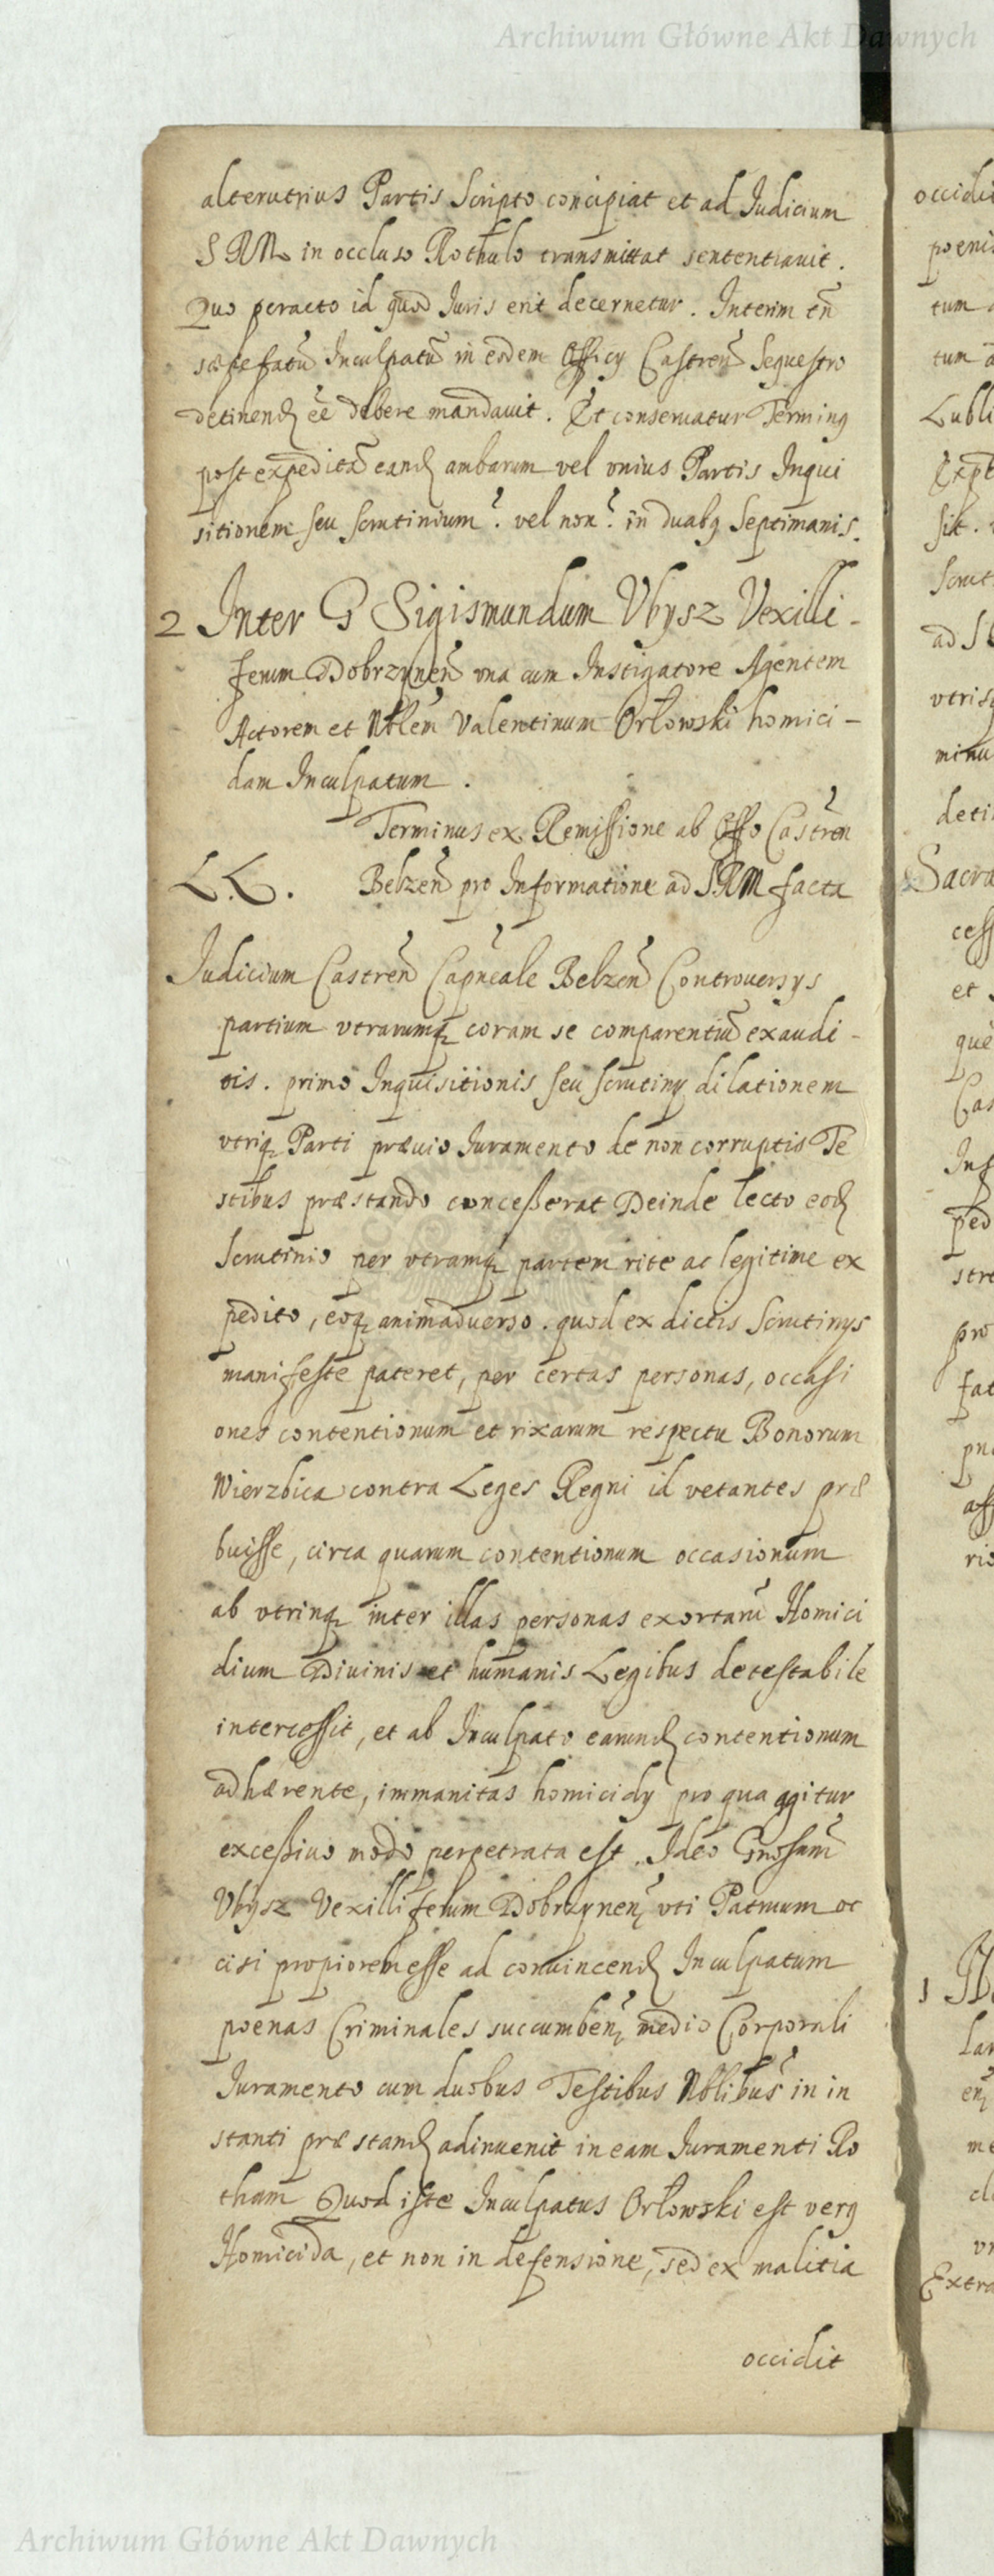 Archiwum Główne Akt Dawnych
alterutrius Partis Scripto concipiat et ad Iudicium
S RM in occluso Rothulo transmittat sententiauit.
Quo peracto id quod Iuris erit decernetur. Interim tñ
sæpefatũ Inculpatũ in eodem Officy Castreñ Sequestro
detinend ẽe debere mandauit. Et conseruatur Terming
post expeditã eand ambarum vel vnius Partis Inqui
sitionem seu scrutinium. vel non. in duabq Septimanis.
2 Inter G Sigismundum Vbysz Vexilli-
ferum Dobrzyneñ vna cum Instigatore Agentem
Actorem et Nblem Valentinum Orłowski homici-
dam Inculpatum.
Terminus ex Remissione ab Offo Castren
L.L. Belzeñ pro Informatione ad SRM facta
Iudicium Castreñ Capneale Belzeñ Controuersys
partium vtrarumq coram se comparentiũ exaudi-
tis. primo Inquisitionis seu scrutiny dilationem
vtriq Parti præuio Iuramento de non corruptis Te
stibus præstando conceßerat Deinde lecto eod
Scrutinio per vtramq partem rite ac legitime ex
pedito, eoq animaduerso. quod ex dictis Scrutinys
manifeste pateret, per certas personas, occasi
ones contentionum et rixarum respectu Bonorum
Wierzbica contra Leges Regni id vetantes præ
buisse, circa quarum contentionum occasionum
ab vtrinq inter illas personas exortarũ Homici
dium Diuinis et humanis Legibus detestabile
intercessit, et ab Inculpato earund contentionum
adhærente, immanitas homicidy pro qua agitur
exceßiuo modo perpetrata est. Ideo Gnosum
Vbysz Vexilliferum Dobrzynen, vti Patruum oc
cisi propiorem esse ad conuincend Inculpatum
poenas Criminales succumben, medio Corporali
Iuramento cum duobus Testibus Nblibus in in
stanti præstand adinuenit in eam Iuramenti Ro
tham Quod iste Inculpatus Orłowski est verq
Homicida, et non in defensione, sed ex malitia
occidit
Archiwum Główne Akt Dawnych